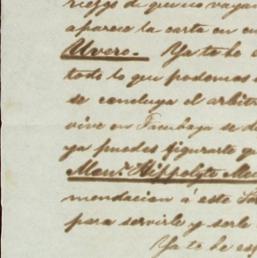 riesgo de que no vayan
aparece la carta en cu
Uvero. Ya te he e
todo lo que podemos
se concluya el arbitr
vive en Fumbaya se d
ya puedes figurarte q
Mons. Hippolyte Me
mendacion á este
para servirle y serle
Ya te he es